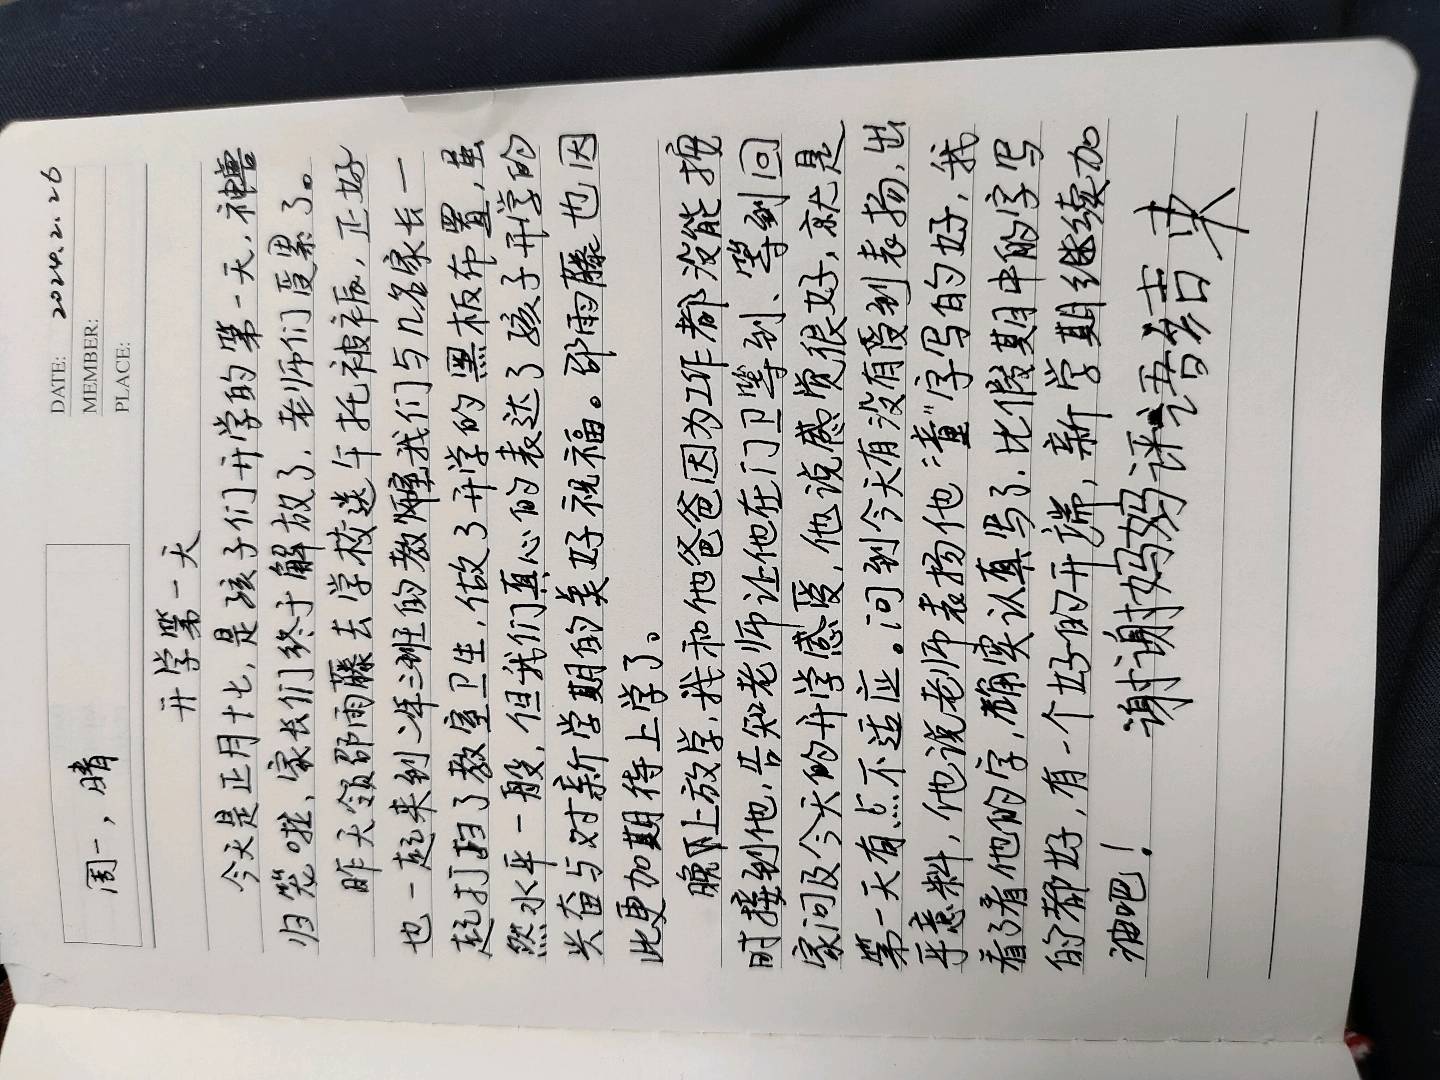 DATE: 2024.2.26
MEMBER:
PLACE:
周一，晴
开学第一天
今天是正月十七，是孩子们开学的第一天，神兽
归笼啦、家长们终于解放了，老师们受累了。
昨天领邵雨藤去学校送午托被褥，正好
也一起来到二年三班的教室我们与几名家长一
起打扫了教室卫生，做了开学的黑板布置，虽
然水平一般，但我们真心的表达了孩子开学的
兴奋与对新学期的美好祝福。邵雨藤也因
此更加期待上学了。
晚上放学，我和他爸爸因为工作都没能按
时接到他，告知老师让他在门卫等到、等到回
家问及今天的开学感受，他说感觉很好，就是
第一天有点不适应。问到今天有没有受到表扬，出
乎意料，他说老师表扬他"字写的好，我
看了看他的字，确实认真当了，比假期中的字写
的都好，有一个好的开端，新学期继续加
油吧！
谢谢妈妈评语